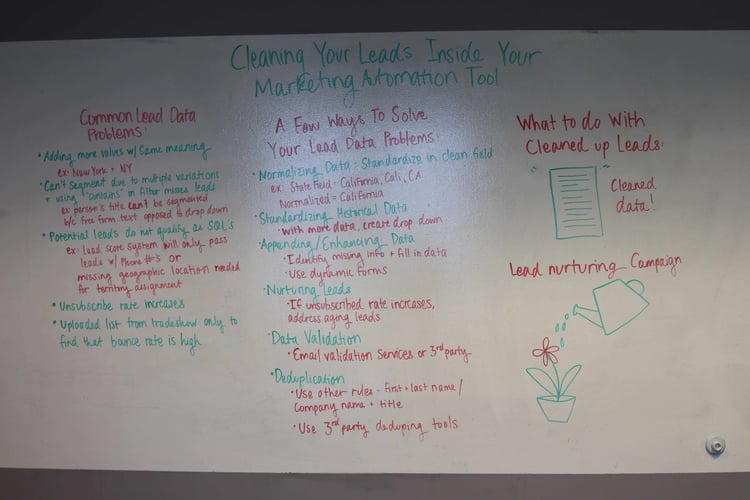 Cleaning Your Leads Inside Your
Marketing Automation Tool
Common Lead Data
Problems:
• Adding more values w/ same meaning
ex: New York + NY
• Can't segment due to multiple variations
+ using "contains" in filter misses leads
ex: person's title can't be segmented
b/c free form text opposed to drop down
• Potential leads do not qualify as SQL's
ex: Lead score system will only pass
leads w/ Phone #'s or
missing geographic location needed
for territory assignment
• Unsubscribe rate increases
• Uploaded list from tradeshow only to
find that bounce rate is high
A Few Ways To Solve
Your Lead Data Problems:
• Normalizing Data: Standardize in clean field
ex: State Field - California, Cali, CA
Normalized = California
• Standardizing Historical Data
• with more data, create drop down
• Appending/Enhancing Data
• Identify missing info + fill in data
• Use dynamic forms
• Nurturing Leads
• If unsubscribed rate increases,
address aging leads
• Data Validation
• Email validation services or 3rd party
• Deduplication
• Use other rules - first + last name/
Company name + title
• Use 3rd party deduping tools
What to do With
Cleaned up Leads:
Cleaned
data!
Lead nurturing Campaign